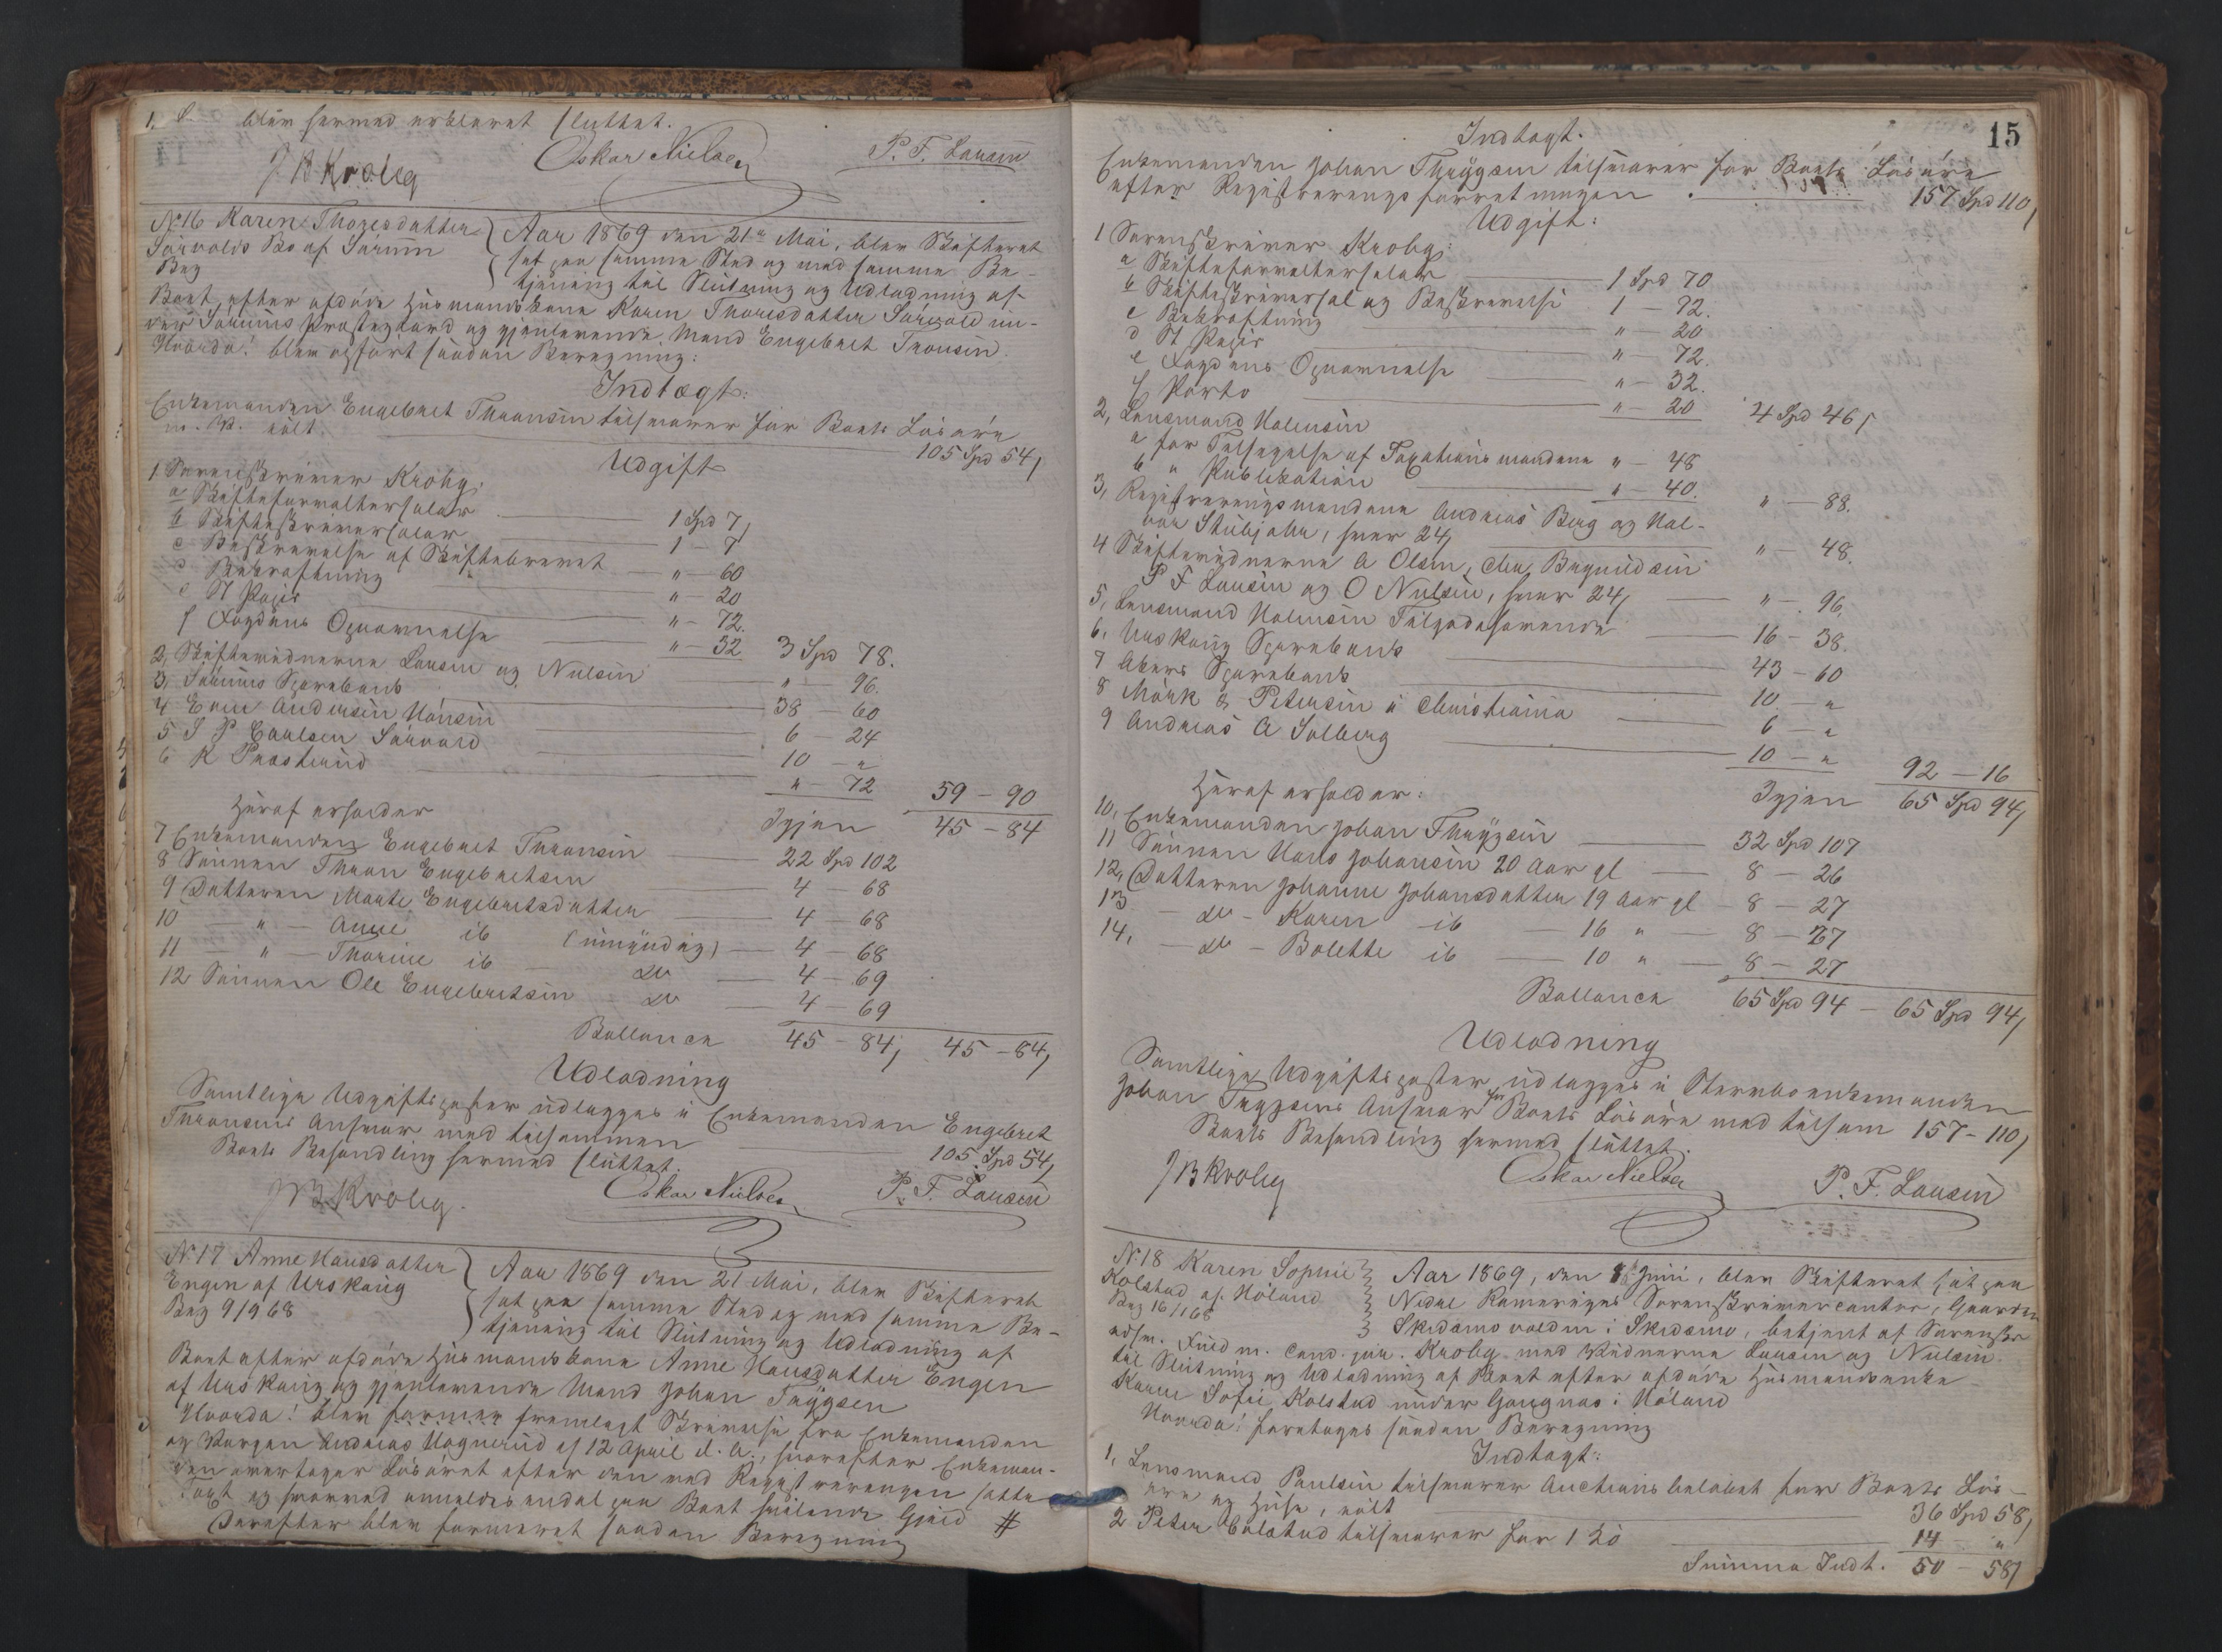 blev hermed erklæret sluttet.
JBKrobÿ Oskar Nielsen P. F. Lausen
No 16 Karen Thoresdatter
Sørvolds Bo af Sørum
Beg
Aar 1869 den 21de Mai, blev Skifteret
sat paa samme Sted og med samme Be-
tjening til Slutning og Udlodning af
Boet efter afdøde Huusmandskone Karen Thoresdatter Sørvold un-
der Sørums Præstegaard og gjenlevende Mand Engebret Thronsen.
Hvorda! blev opført saadan Beregning:
Indtægt:
Enkemanden Engebret Thronsen tilsvarer for Boets Løsøre
m. V. solt 105 Spd 54,
Udgift
1. Sorenskriver Krobÿ:
a Skifteforvaltersalar 1 Spd 7,
b Skifteskriversalar 1 - 7
c Beskrivelse af Skiftebrevet " - 60
d Bekræftning " - 20
e St Papir " - 72.
f Fogdens Opnævnelse " - 32 3 Spd 78.
2, Skiftevidnerne Lausen og Nielsen " - 96.
3, Sørums Sparebank 38 - 60
4 Even Andersen Hønsen 6 - 24
5 S P Carlsen Sørvard 10 - "
6 K Præsterud " - 72 59 - 90
Heraf erholder Igjen 45 - 84
7 Enkemanden Engebret Thronsen 22 Spd 102
8 Sønnen Thron Engebretsen 4 - 68
9 Datteren Marte Engebretsdatter 4 - 68
10 " - Anne ib (umyndig) 4 - 68
11 " - Thorine ib do 4 - 69
12 Sønnen Ole Engebretsen do 4 - 69
Ballance 45 - 84, 45 - 84,
Udlodning
Samtlige Udgiftsposter udlægges i Enkemanden Engebret
Thronsens Ansvar med tilsammen 105 Spd 54,
Boets Behandling hermed sluttet.
JBKrobÿ. Oskar Nielsen P. F. Lausen
No 17 Anne Hansdatter
Engen af Urskoug
Beg 9/9 68
Aar 1869 den 21 Mai, blev Skifteret
sat paa samme Sted og med samme Be-
tjening til Slutning og Udlodning af
Boet efter afdøde Huusmandskone Anne Hansdatter Engen
af Urskoug og gjenlevende Mand Johan Trygsen
Hvorda! blev fremlagt Skrivelse fra Enkemanden
og Værgen Andreas Hagnerud af 12 April d. A., hvorefter Enkeman-
den overtager Løsøret efter den ved Registreringen satte
Taxt og hvorved anmeldes endel paa Boet hvilende Gjæld #
Derefter blev formeret saadan Beregning
15
Indtægt.
Enkemanden Johan Thrygsen tilsvarer for Boets Løsøre
efter Registreringsforretningen 157 Spd 110,
Udgift:
1 Sorenskriver Krobÿ:
a Skifteforvaltersalar 1 Spd 70
b Skifteskriversal og Beskrivelse 1 - 72.
c Bekræftning " - 20
d St Papir " - 72.
e Fogdens Opnævnelse " - 32.
f Porto " - 20 4 Spd 46,
2, Lensmand Holmsen
a for Tilsigelse af Taxationsmændene " - 48
b " Publikation " - 40. " - 88.
3, Registreringsmændene Andreas Berg og Hal-
vor Stubjohn, hver 24, " - 48.
4 Skiftevidnerne A Olsen, Chr. Bergundsen
P F Lausen og O Nielsen, hver 24, " - 96.
5, Lensmand Holmsen Tilgodehavende 16 - 38.
6, Urskoug Sparebank 43 - 60
7 Akers Sparebank 10 - "
8 Mørk & Petersen i Christiania 6 - "
9 Andreas A Solberg 10 - " 92 - 16
Heraf erholder: Igjen 65 Spd 94,
10, Enkemanden Johan Thrygsen 32 Spd 107
11 Sønnen Hans Johansen 20 Aar gl 8 - 26
12, Datteren Johanne Johansdatter 19 Aar gl 8 - 27
13 - do - Karen ib 16 " 8 - 27
14, - do - Bolette ib 10 " 8 - 27
Ballance 65 Spd 94 - 65 Spd 94,
Udlodning
Samtlige Udgiftsposter udlægges i Stervboenkemanden
Johan Trygsens Ansvar for Boets Løsøre med tilsam 157 - 110,
Boets Behandling hermed sluttet.
JBKrobÿ Oskar Nielsen P. F. Lausen
No 18 Karen Sophie
Kolstad af Høland
Beg 16/1 68
Aar 1869, den 8 Juni, blev Skifteret sat paa
Nedre Romeriges Sorenskrivercontor, Gaarden
Skedsmovolden i Skedsmo, betjent af Sorenskr
edsm. Fuldm. Cand. jur. Krobÿ med Vidnerne Lausen og Nielsen
til Slutning og Udlodning af Boet efter afdøde Huusmandsenke
Karen Sofie Kolstad under Gangnæs i Høland
Hvorda! foretoges saadan Beregning
Indtægt:
1, Lensmand Paulsen tilsvarer Auctionsbeløbet for Boets Løs-
øre og Huse, solt 36 Spd 58,
2 Peter Colstad tilsvarer for 1 Ko 14 - "
Summa Indt. 50 - 58,